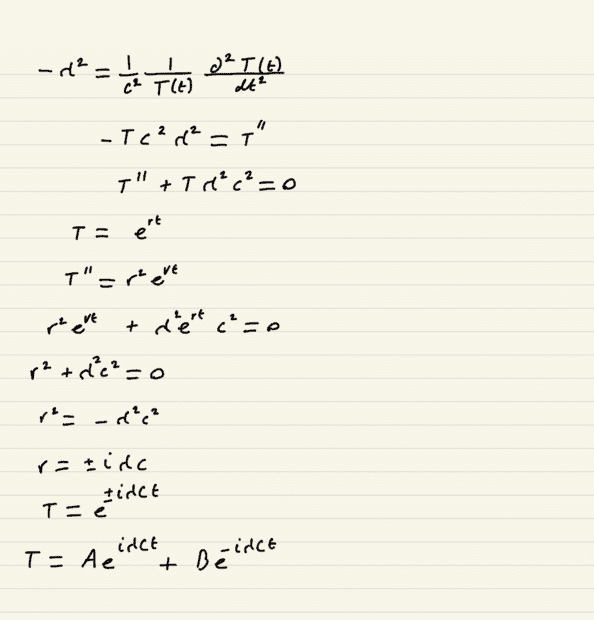 -α² = 1/c² 1/T(t) ∂²T(t)/dt²
-Tc²α² = T''
T'' + Tα²c² = 0
T = e^{rt}
T'' = r²e^{rt}
r²e^{rt} + α²e^{rt} c² = 0
r² + α²c² = 0
r² = -α²c²
r = ±iαc
T = e^{±iαct}
T = Ae^{iαct} + Be^{-iαct}